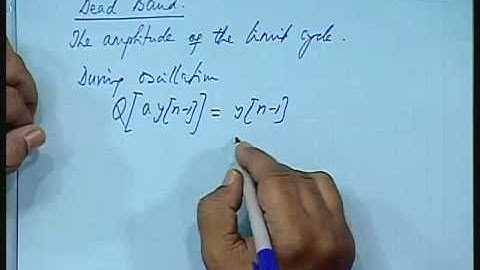 Dead Band.
The amplitude of the limit cycle.
During oscillation
Q[a y[n-1]] = y[n-1]